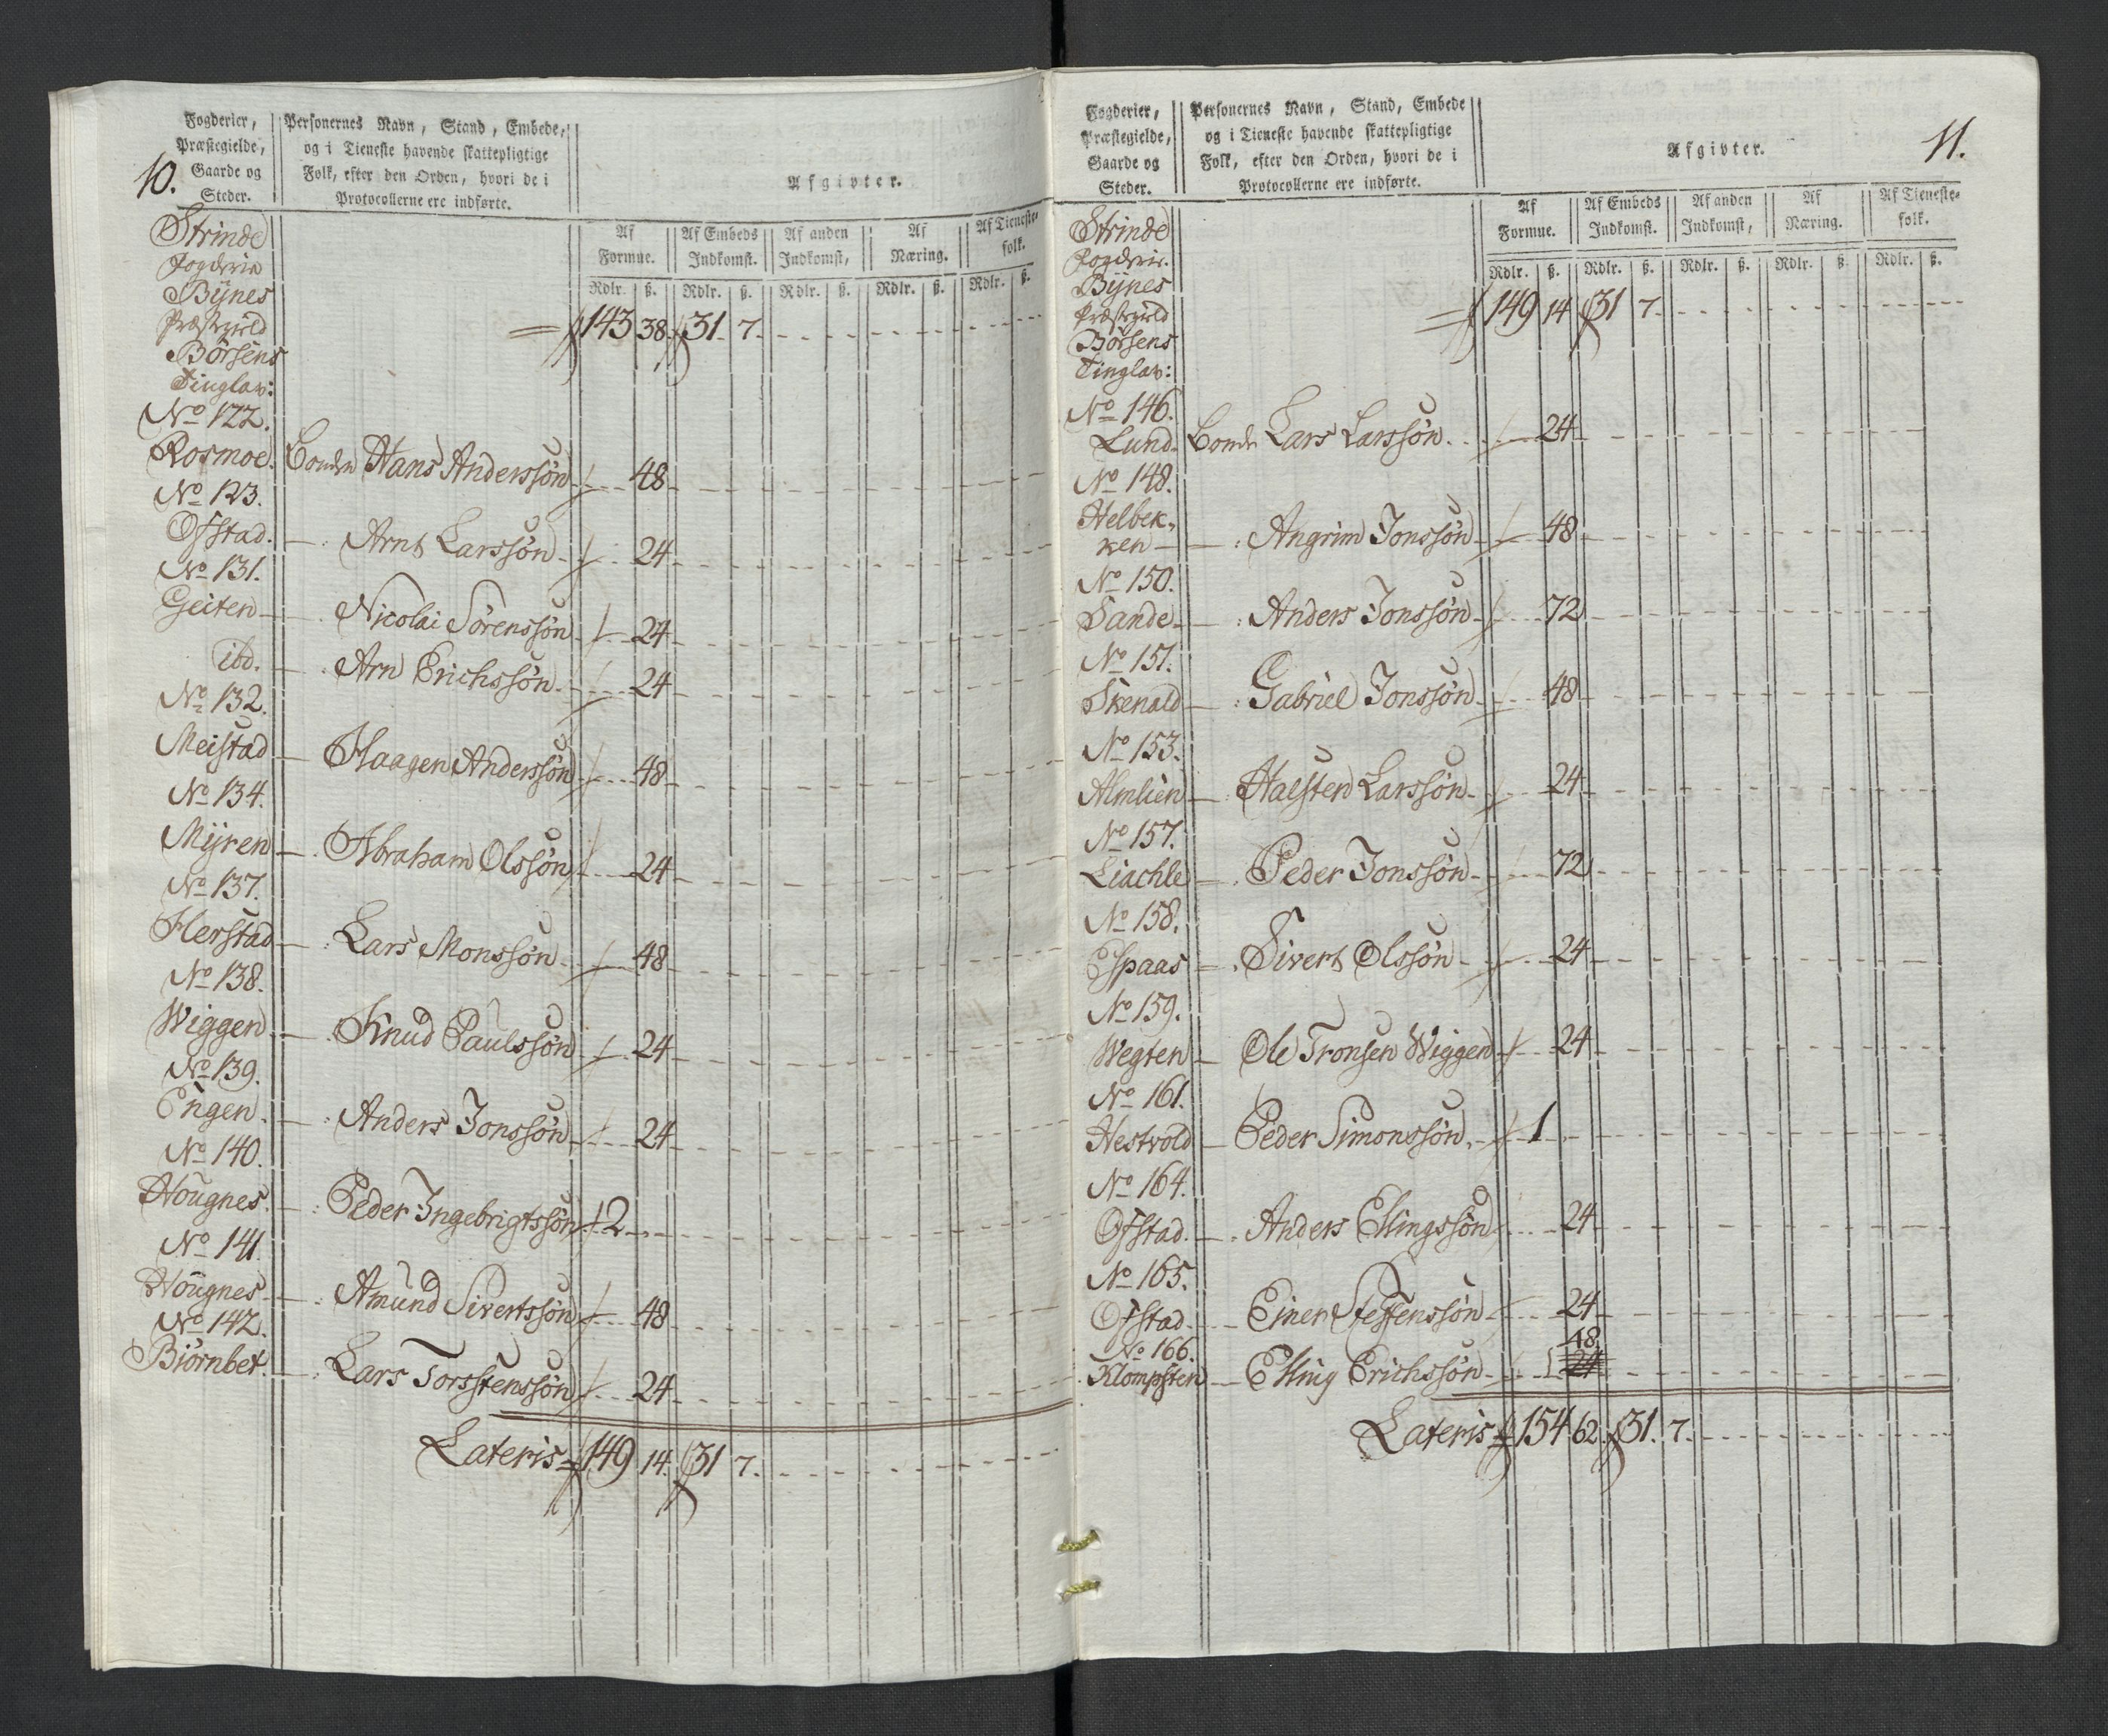 10.
Fogderier,
Præstegielde,
Gaarde og
Steder.
Personernes Navn, Stand, Embede,
og i Tieneste havende skattepligtige
Folk, efter den Orden, hvori de i
Protocollerne ere indførte.
Afgivter.
Af Formue. Af Embeds Indkomst. Af anden Indkomst, Af Næring. Af Tieneste-folk.
Rdlr. ß. Rdlr. ß. Rdlr. ß. Rdlr. ß. Rdlr. ß.
Strinde
Fogderie
Bÿnes
Præstegield
Børsens
Tinglav:
143 38. 31. 7.
No 122.
Rosmoe. Bonde Hans Anderssøn 48
No 123.
Ofstad. Arnt Larssøn 24
No 131.
Geiten Nicolai Sørenssøn 24
ibd. Arn Erichssøn 24
No 132.
Meistad Haagen Anderssøn 48
No 134.
Mÿren Abraham Olssøn 24
No 137.
Herstad Lars Monssøn 48
No 138.
Wiggen Knud Paulssøn 24
No 139.
Engen Anders Jonssøn 24
No 140.
Hougnes. Peder Ingebrigtssøn 2
No 141
Hougnes Amund Sivertssøn 48
No 142.
Biørnbet. Lars Torsstenssøn 24
Lateris 149 14. 31 7.
11.
Fogderier,
Præstegielde,
Gaarde og
Steder.
Personernes Navn, Stand, Embede
og i Tieneste havende skattepligtige
Folk, efter den Orden, hvori de i
Protocollerne ere indførte.
Afgivter.
Af Formue. Af Embeds Indkomst. Af anden Indkomst, Af Næring. Af Tieneste-folk.
Rdlr. ß. Rdlr. ß. Rdlr. ß. Rdlr. ß. Rdlr. ß.
Strinde
Fogderie.
Bÿnes
Præstegield
Børsens
Tinglav:
149 14 31 7.
No 146.
Lund. Bonde Lars Larssøn. 24
No 148.
Helbek-
ken Angrim Jonssøn 48
No 150.
Sande Anders Jonssøn 72
No 151.
Skenald Gabriel Jonssøn 48
No 153.
Almlien Halsten Larssøn 24
No 157.
Liachle Peder Jonssøn 72
No 158.
Espaas Sivert Olssøn 24
No 159.
Wegten Ole Tronsen Wiggen 24
No 161.
Hestvold Peder Simonssøn. 1
No 164.
Ofstad. Anders Ellingssøn 24
No 165.
Ofstad. Einer Steffenssøn 24
No 166. 48
Klompsten Elling Erichssøn 24
Lateris 154 62. 31. 7.